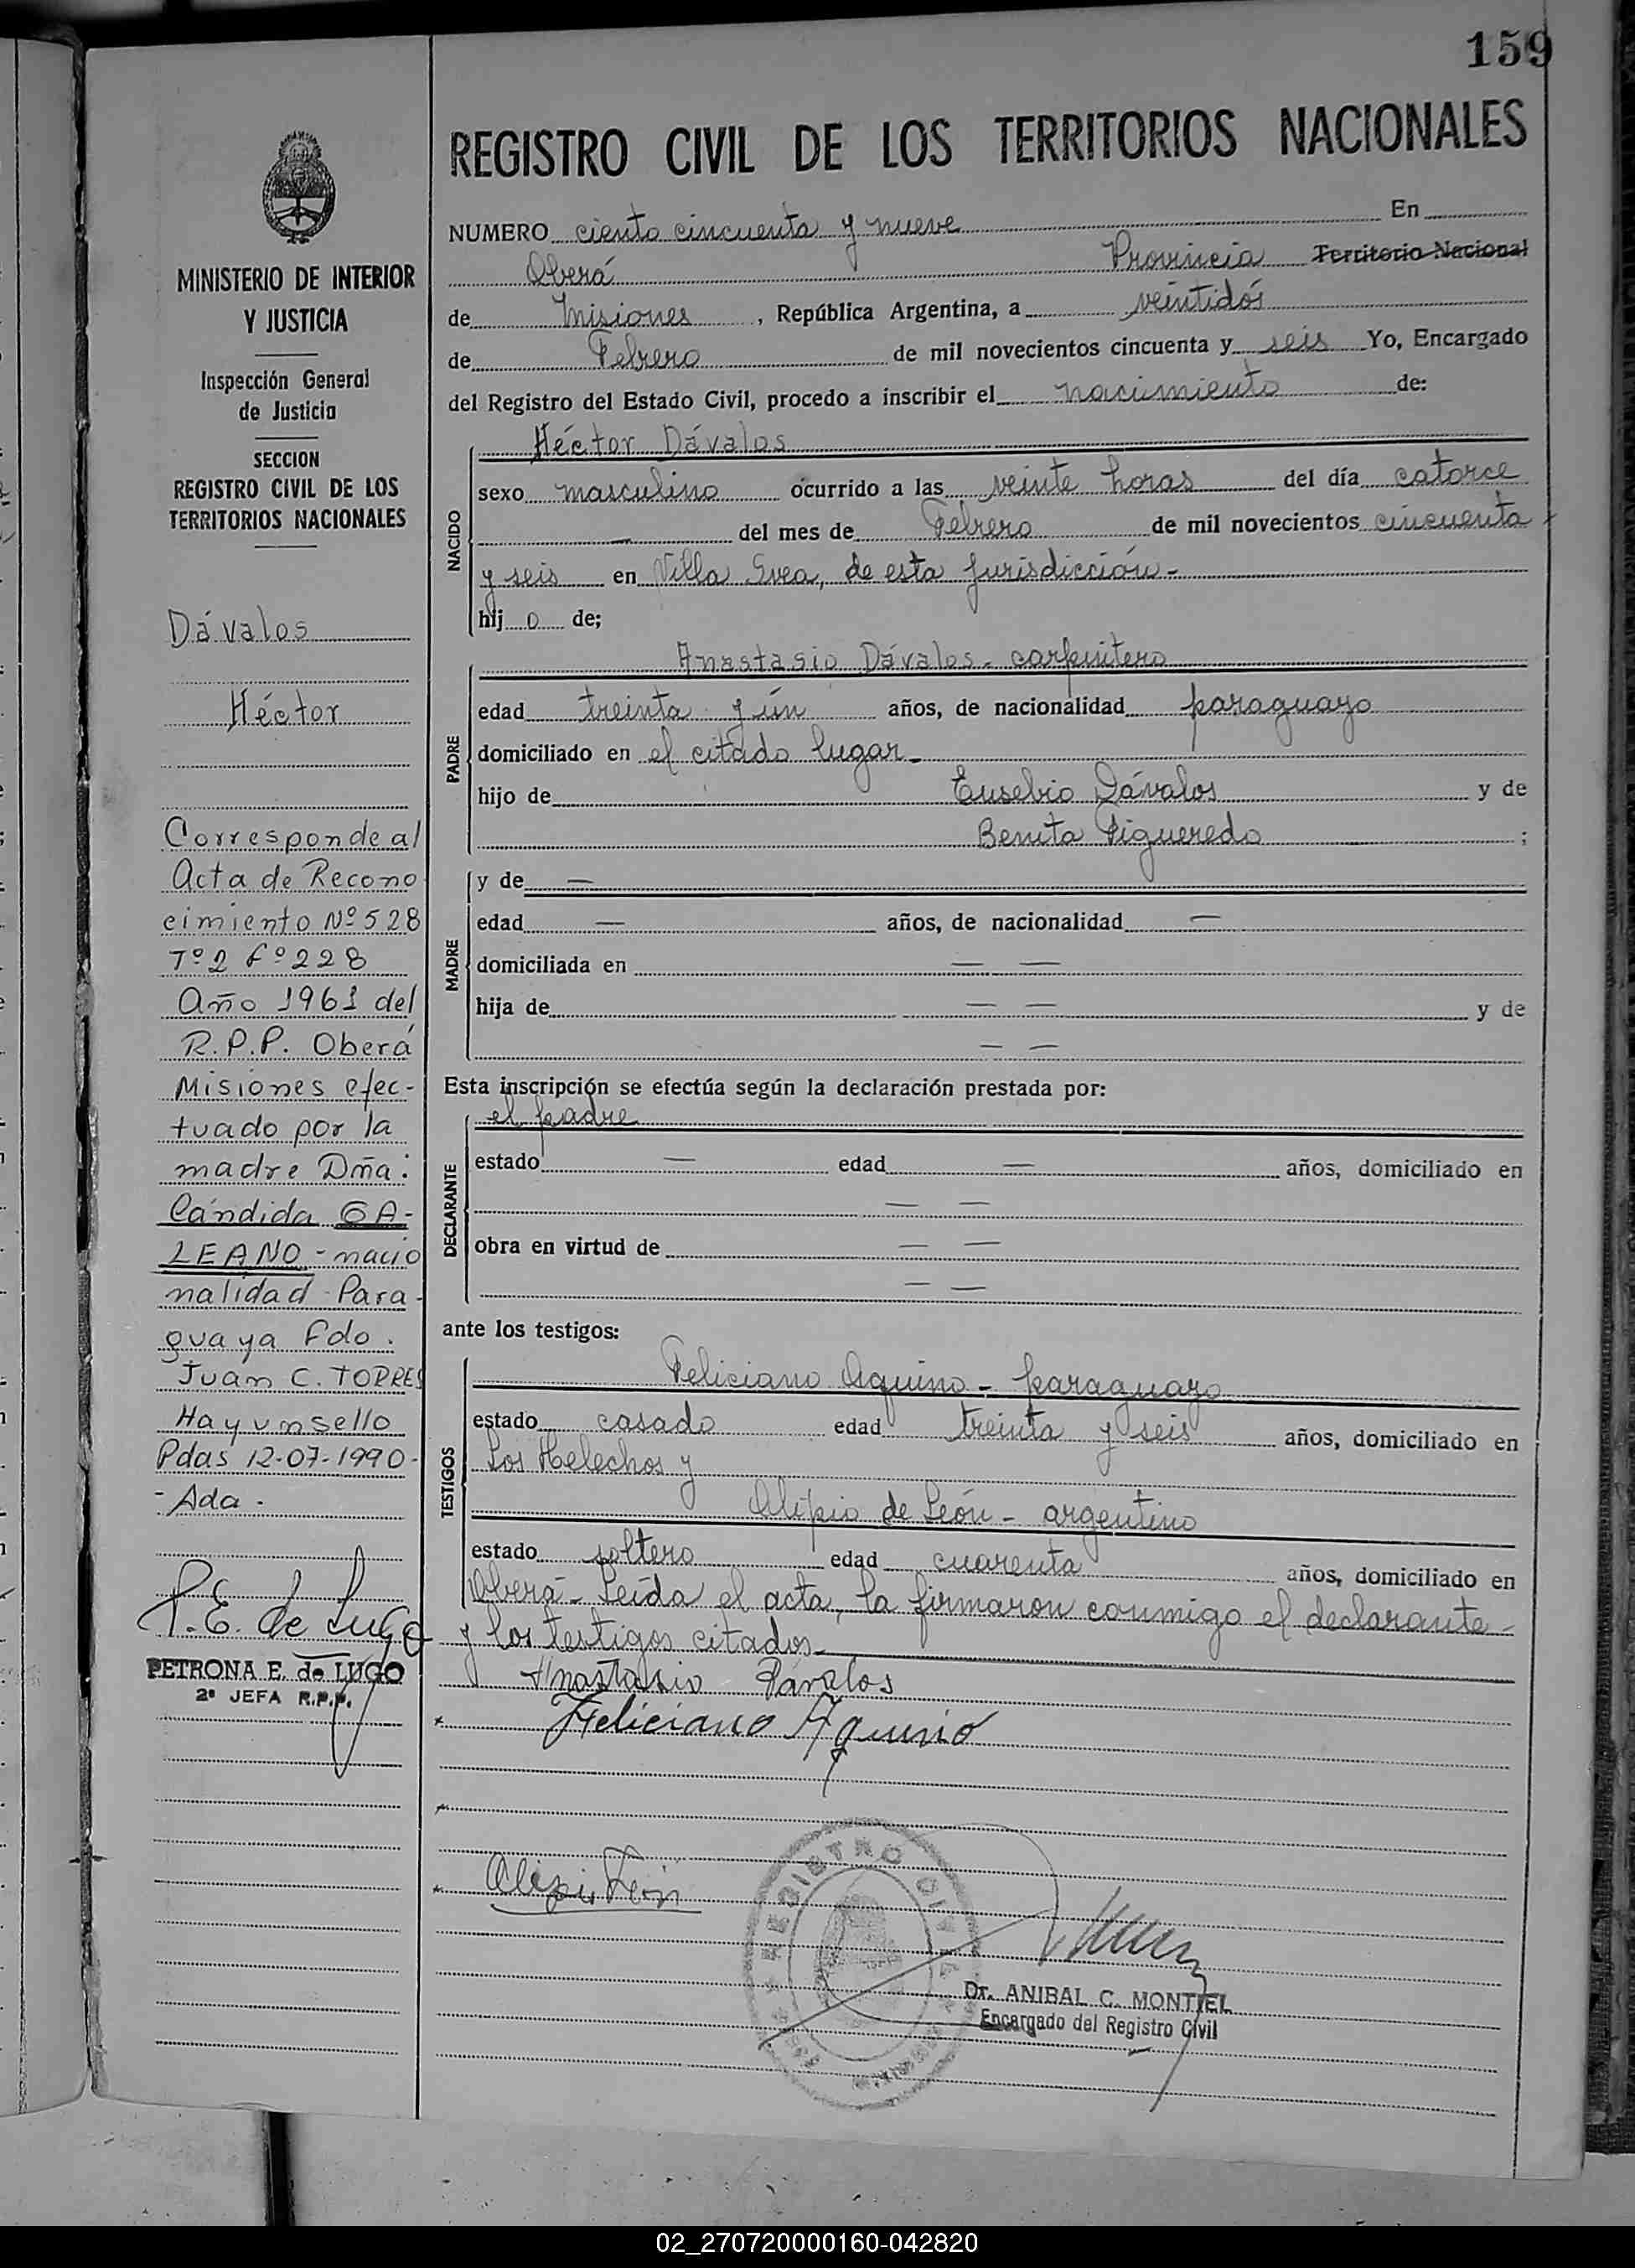 159
REGISTRO CIVIL DE LOS TERRITORIOS NACIONALES
NUMERO ciento cincuenta y nueve En
Oberá Provincia Territorio Nacional
de Misiones, República Argentina, a veintidós
de Febrero de mil novecientos cincuenta y seis Yo, Encargado
del Registro del Estado Civil, procedo a inscribir el nacimiento de:
NACIDO
Héctor Dávalos
sexo masculino ocurrido a las veinte horas del día catorce
— del mes de Febrero de mil novecientos cincuenta
y seis en Villa Svea, de esta jurisdicción -
hijo de;
PADRE
Anastasio Dávalos - carpintero
edad treinta y ún años, de nacionalidad paraguayo
domiciliado en el citado lugar -
hijo de Eusebio Dávalos y de
Benita Figueredo ;
MADRE
y de —
edad — años, de nacionalidad —
domiciliada en — —
hija de — — y de
— —
Esta inscripción se efectúa según la declaración prestada por:
DECLARANTE
el padre
estado — edad — años, domiciliado en
— —
obra en virtud de — —
— —
ante los testigos:
TESTIGOS
Feliciano Aquino - paraguayo
estado casado edad treinta y seis años, domiciliado en
Los Helechos y
Alipio de León - argentino
estado soltero edad cuarenta años, domiciliado en
Oberá - Leída el acta, la firmaron conmigo el declarante
y los testigos citados -
Anastasio Dávalos
Feliciano Aquino
Alipio León
REGISTRO CIVIL
Dr. ANIBAL C. MONTIEL
Encargado del Registro Civil
MINISTERIO DE INTERIOR
Y JUSTICIA
Inspección General
de Justicia
SECCION
REGISTRO CIVIL DE LOS
TERRITORIOS NACIONALES
Dávalos
Héctor
Corresponde al
Acta de Recono
cimiento Nº 528
Tº 2 Fº 228
Año 1961 del
R.P.P. Oberá
Misiones efec-
tuado por la
madre Dña:
Cándida GA-
LEANO - nacio
nalidad Para-
guaya Fdo.
Juan C. TORRES
Hay un sello
Pdas 12-07-1990-
- Ada -
P.E. de Lugo
PETRONA E. de LUGO
2ª JEFA R.P.P.
02_270720000160-042820